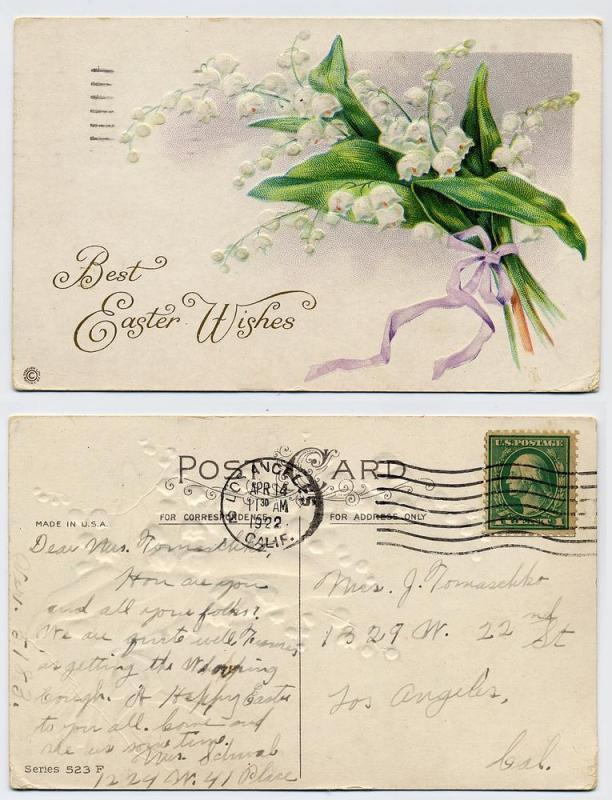 Best
Easter Wishes
©
POST CARD
LOS ANGELES
APR 14
11 30 AM
1922
CALIF.
U.S. POSTAGE
MADE IN U.S.A.
FOR CORRESPONDENCE
FOR ADDRESS ONLY
Dear Mrs. Tomaschko,
How are you
and all your folks?
We are quite well
is getting the Whooping
Cough. A Happy Easter
to you all. Come and
see us some time.
Mrs. Schwab
1229 W. 41 Place
Series 523 F
Mrs. J. Tomaschko
1329 W. 22nd St
Los Angeles,
Cal.